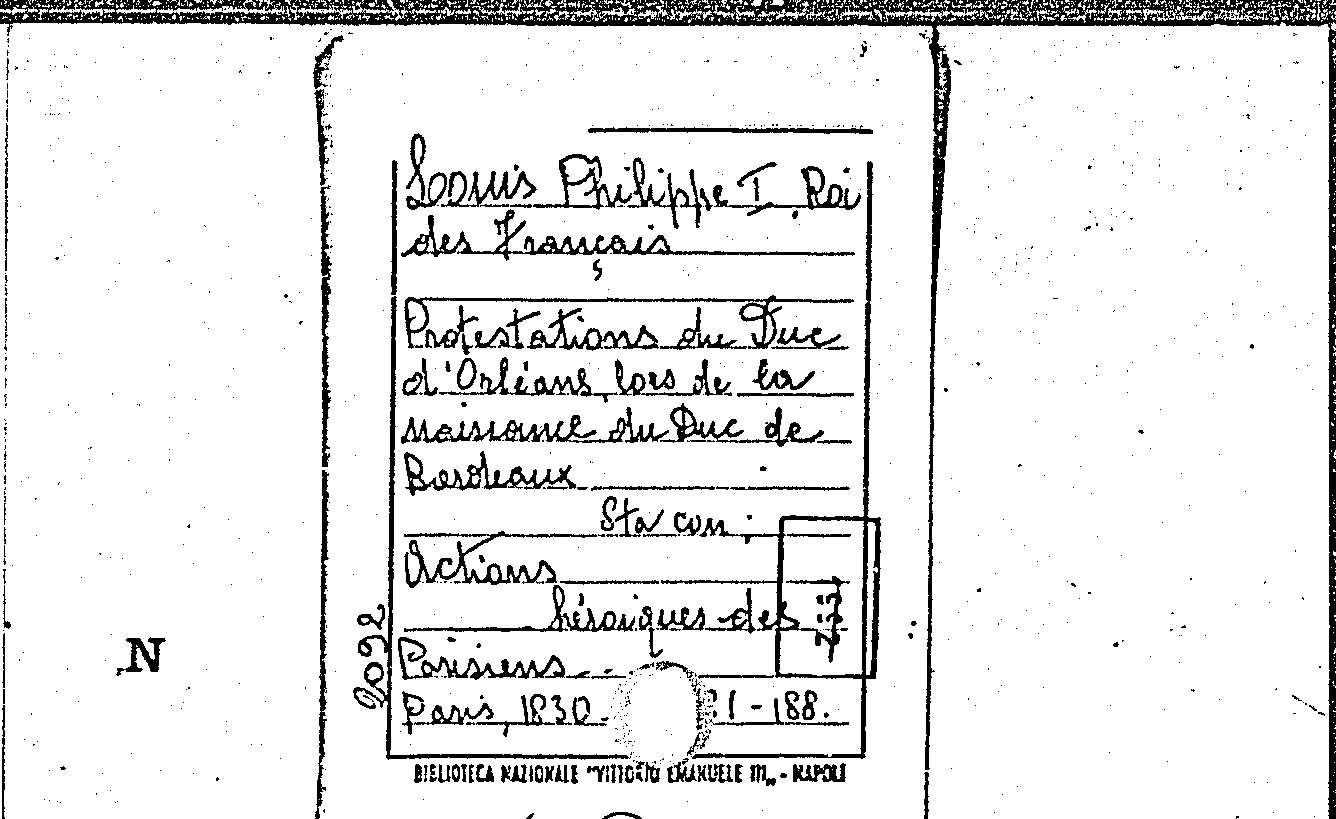 Louis Philippe I, Roi
des Français
Protestations du Duc
d'Orléans, lors de la
naissance du Duc de
Bordeaux
Sta con:
Actions
héroiques des
Parisiens...
Paris, 1830. 1-188.
2092
N
BIBLIOTECA NAZIONALE "VITTORIO EMANUELE III„ - NAPOLI